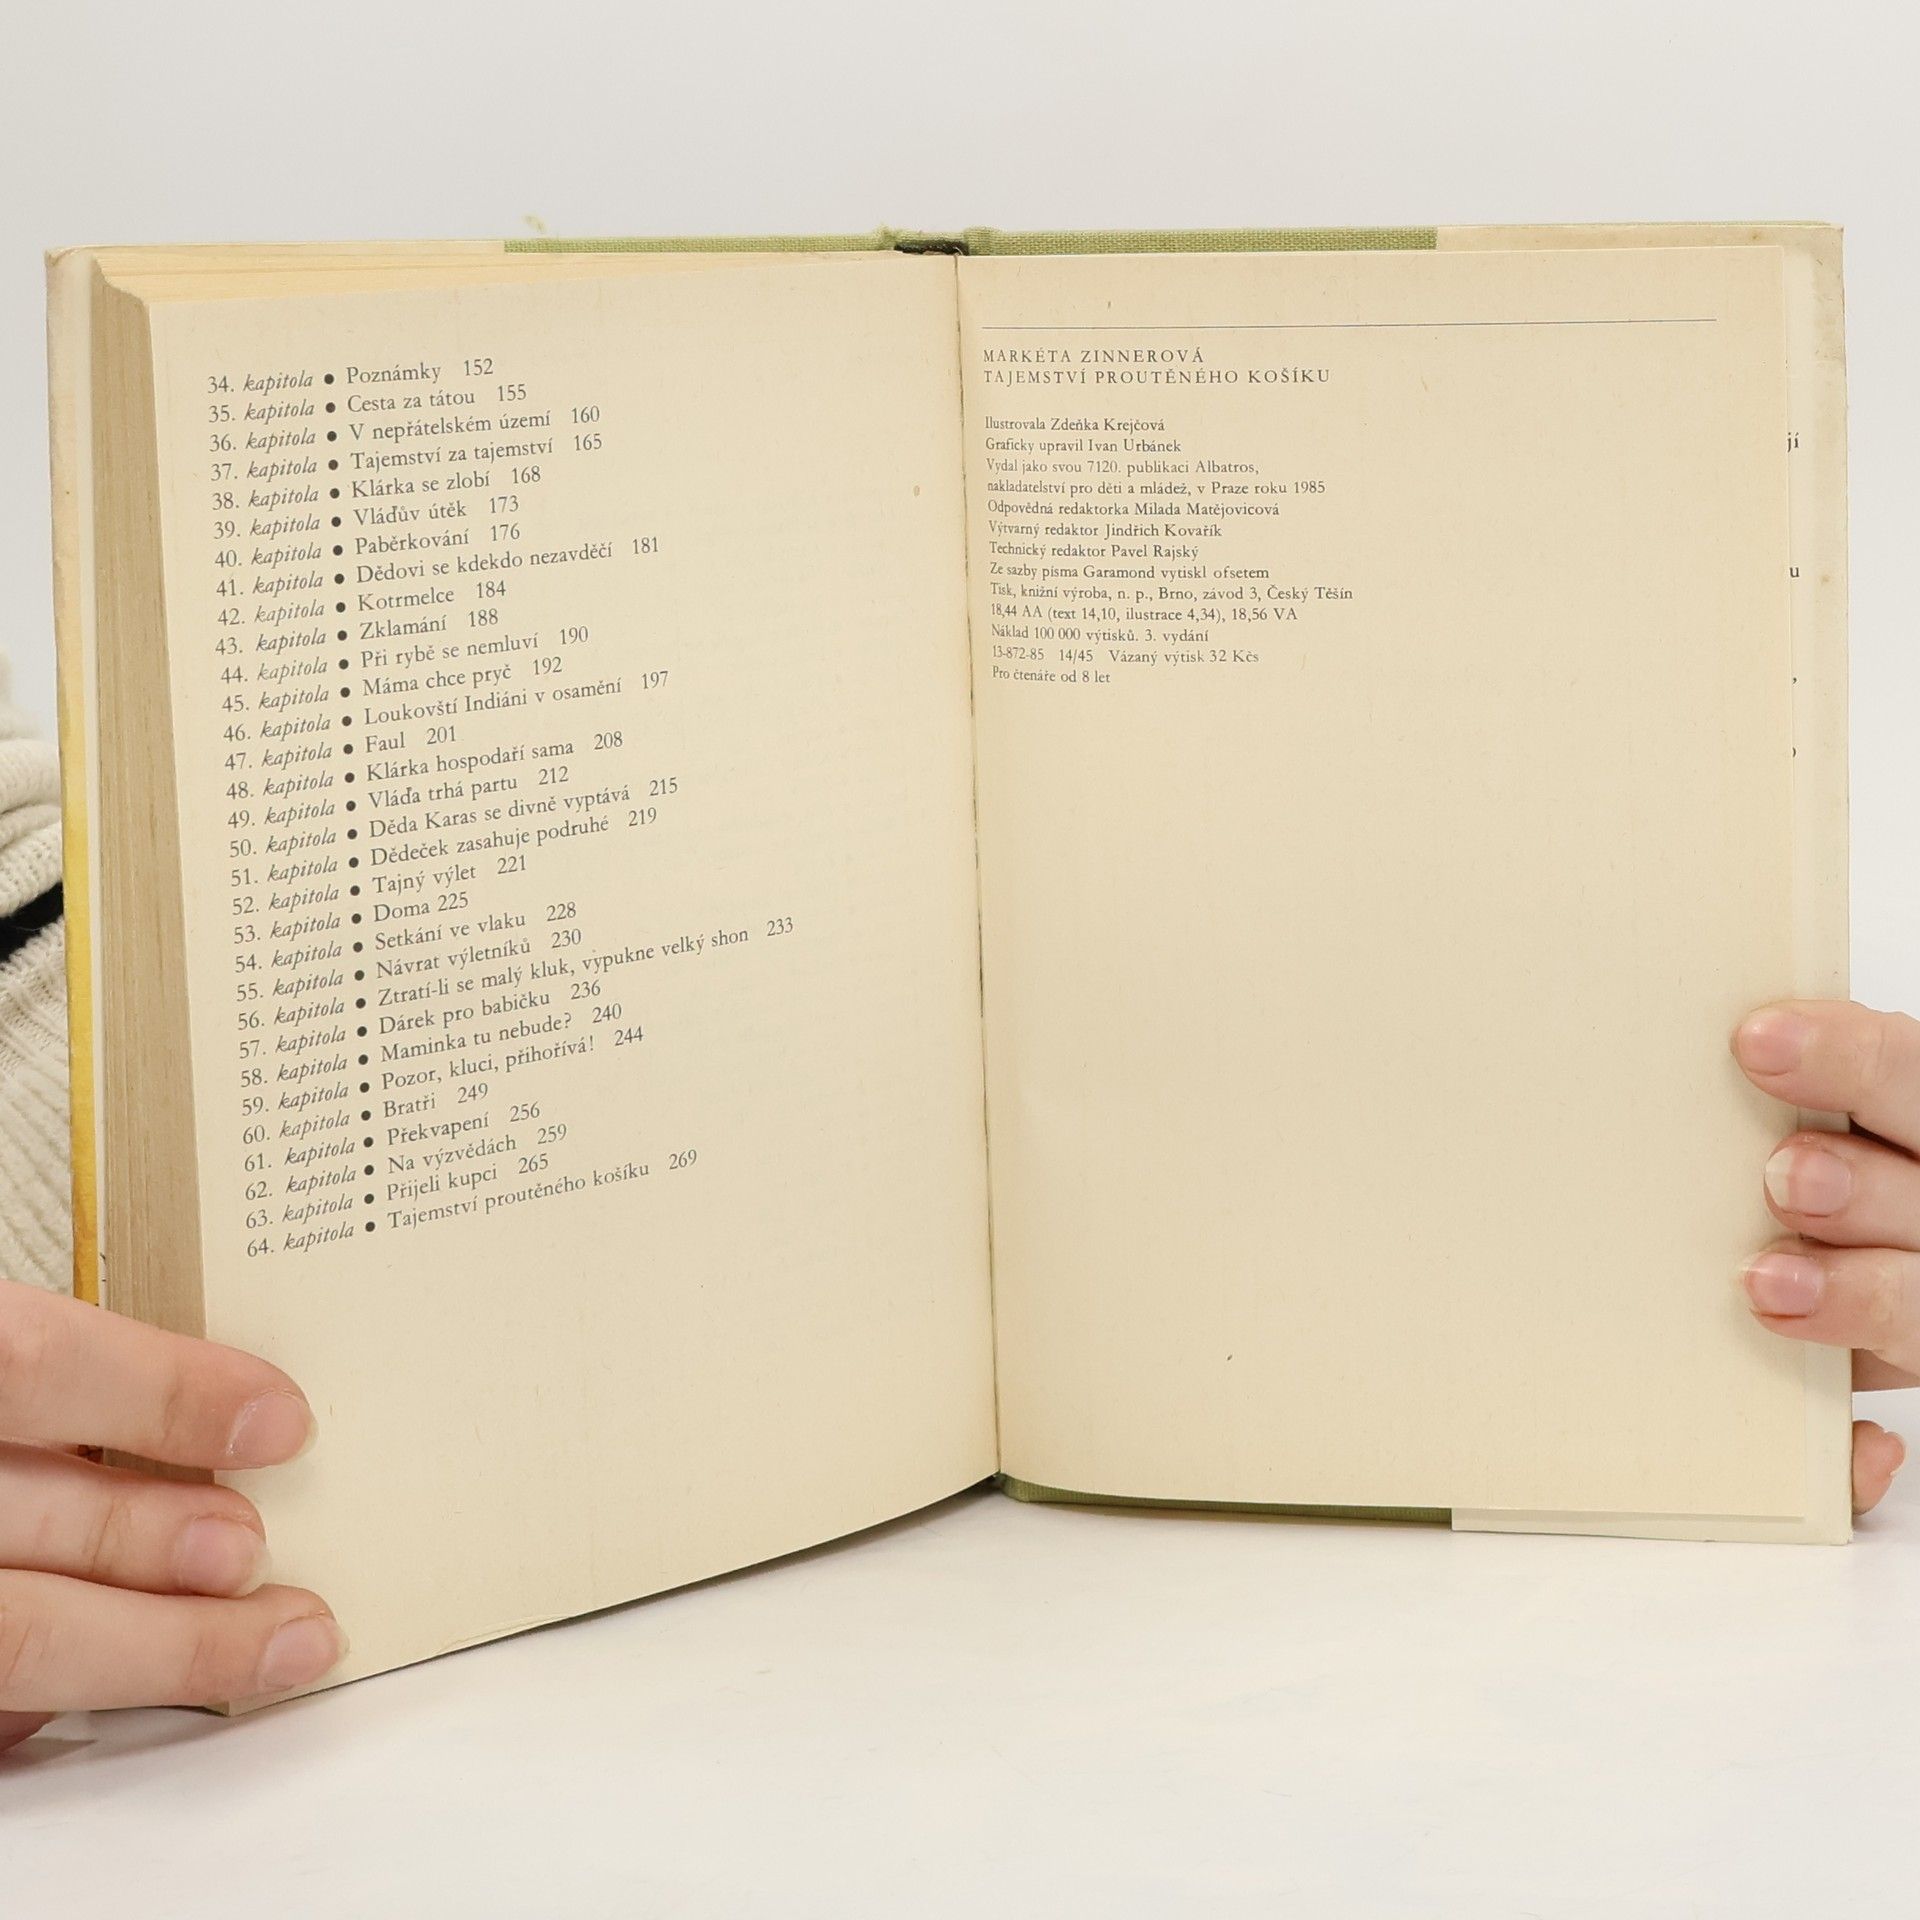 34. kapitola ● Poznámky 152
35. kapitola ● Cesta za tátou 155
36. kapitola ● V nepřátelském území 160
37. kapitola ● Tajemství za tajemství 165
38. kapitola ● Klárka se zlobí 168
39. kapitola ● Vláďův útěk 173
40. kapitola ● Paběrkování 176
41. kapitola ● Dědovi se kdekdo nezavděčí 181
42. kapitola ● Kotrmelce 184
43. kapitola ● Zklamání 188
44. kapitola ● Při rybě se nemluví 190
45. kapitola ● Máma chce pryč 192
46. kapitola ● Loukovští Indiáni v osamění 197
47. kapitola ● Faul 201
48. kapitola ● Klárka hospodaří sama 208
49. kapitola ● Vláďa trhá partu 212
50. kapitola ● Děda Karas se divně vyptává 215
51. kapitola ● Dědeček zasahuje podruhé 219
52. kapitola ● Tajný výlet 221
53. kapitola ● Doma 225
54. kapitola ● Setkání ve vlaku 228
55. kapitola ● Návrat výletníků 230
56. kapitola ● Ztratí-li se malý kluk, vypukne velký shon 233
57. kapitola ● Dárek pro babičku 236
58. kapitola ● Maminka tu nebude? 240
59. kapitola ● Pozor, kluci, přihořívá! 244
60. kapitola ● Bratři 249
61. kapitola ● Překvapení 256
62. kapitola ● Na výzvědách 259
63. kapitola ● Přijeli kupci 265
64. kapitola ● Tajemství proutěného košíku 269
MARKÉTA ZINNEROVÁ
TAJEMSTVÍ PROUTĚNÉHO KOŠÍKU
Ilustrovala Zdeňka Krejčová
Graficky upravil Ivan Urbánek
Vydal jako svou 7120. publikaci Albatros,
nakladatelství pro děti a mládež, v Praze roku 1985
Odpovědná redaktorka Milada Matějovicová
Výtvarný redaktor Jindřich Kovařík
Technický redaktor Pavel Rajský
Ze sazby písma Garamond vytiskl ofsetem
Tisk, knižní výroba, n. p., Brno, závod 3, Český Těšín
18,44 AA (text 14,10, ilustrace 4,34), 18,56 VA
Náklad 100 000 výtisků. 3. vydání
13-872-85 14/45 Vázaný výtisk 32 Kčs
Pro čtenáře od 8 let